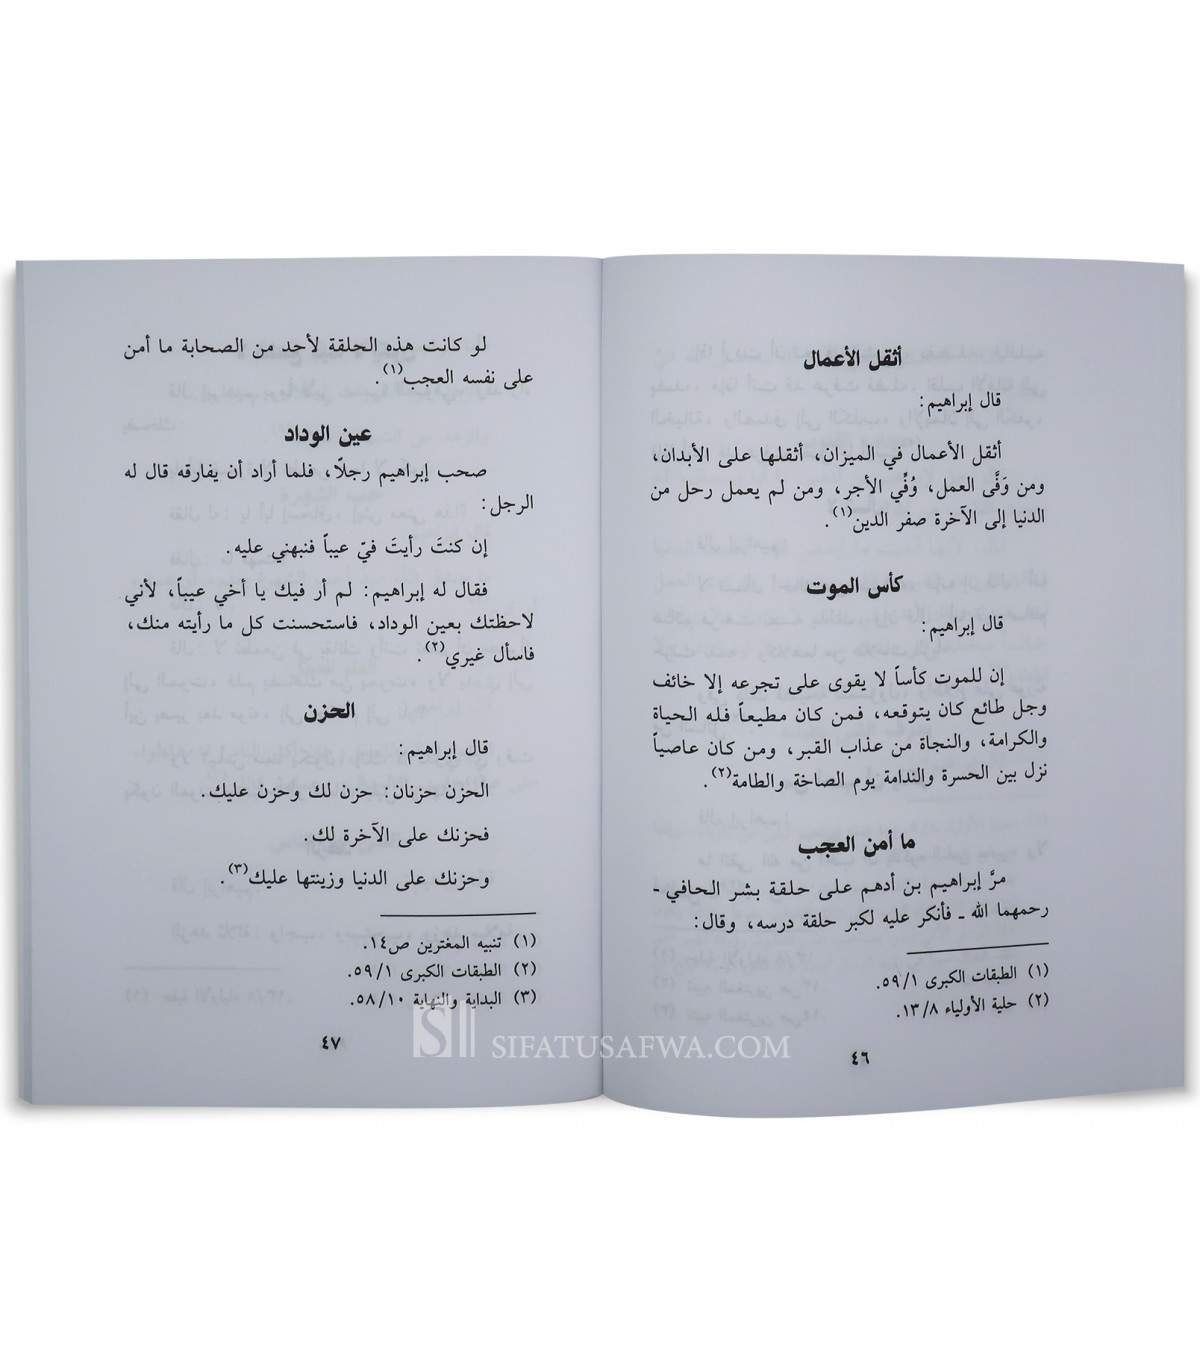 أثقل الأعمال
قال إبراهيم:
أثقل الأعمال في الميزان، أثقلها على الأبدان،
ومن وَفَّى العمل، وُفِّي الأجر، ومن لم يعمل رحل من
الدنيا إلى الآخرة صفر الدين(١).
كأس الموت
قال إبراهيم:
إن للموت كأساً لا يقوى على تجرعه إلا خائف
وجل طائع كان يتوقعه، فمن كان مطيعاً فله الحياة
والكرامة، والنجاة من عذاب القبر، ومن كان عاصياً
نزل بين الحسرة والندامة يوم الصاخة والطامة(٢).
ما أمن العجب
مرَّ إبراهيم بن أدهم على حلقة بشر الحافي -
رحمهما الله - فأنكر عليه لكبر حلقة درسه، وقال:
(١) الطبقات الكبرى ٥٩/١.
(٢) حلية الأولياء ١٣/٨.
٤٦
لو كانت هذه الحلقة لأحد من الصحابة ما أمن
على نفسه العجب(١).
عين الوداد
صحب إبراهيم رجلًا، فلما أراد أن يفارقه قال له
الرجل:
إن كنتَ رأيتَ فيّ عيباً فنبهني عليه.
فقال له إبراهيم: لم أر فيك يا أخي عيباً، لأني
لاحظتك بعين الوداد، فاستحسنت كل ما رأيته منك،
فاسأل غيري(٢).
الحزن
قال إبراهيم:
الحزن حزنان: حزن لك وحزن عليك.
فحزنك على الآخرة لك.
وحزنك على الدنيا وزينتها عليك(٣).
(١) تنبيه المغترين ص١٤.
(٢) الطبقات الكبرى ٥٩/١.
(٣) البداية والنهاية ٥٨/١٠.
٤٧
SIFATUSAFWA.COM